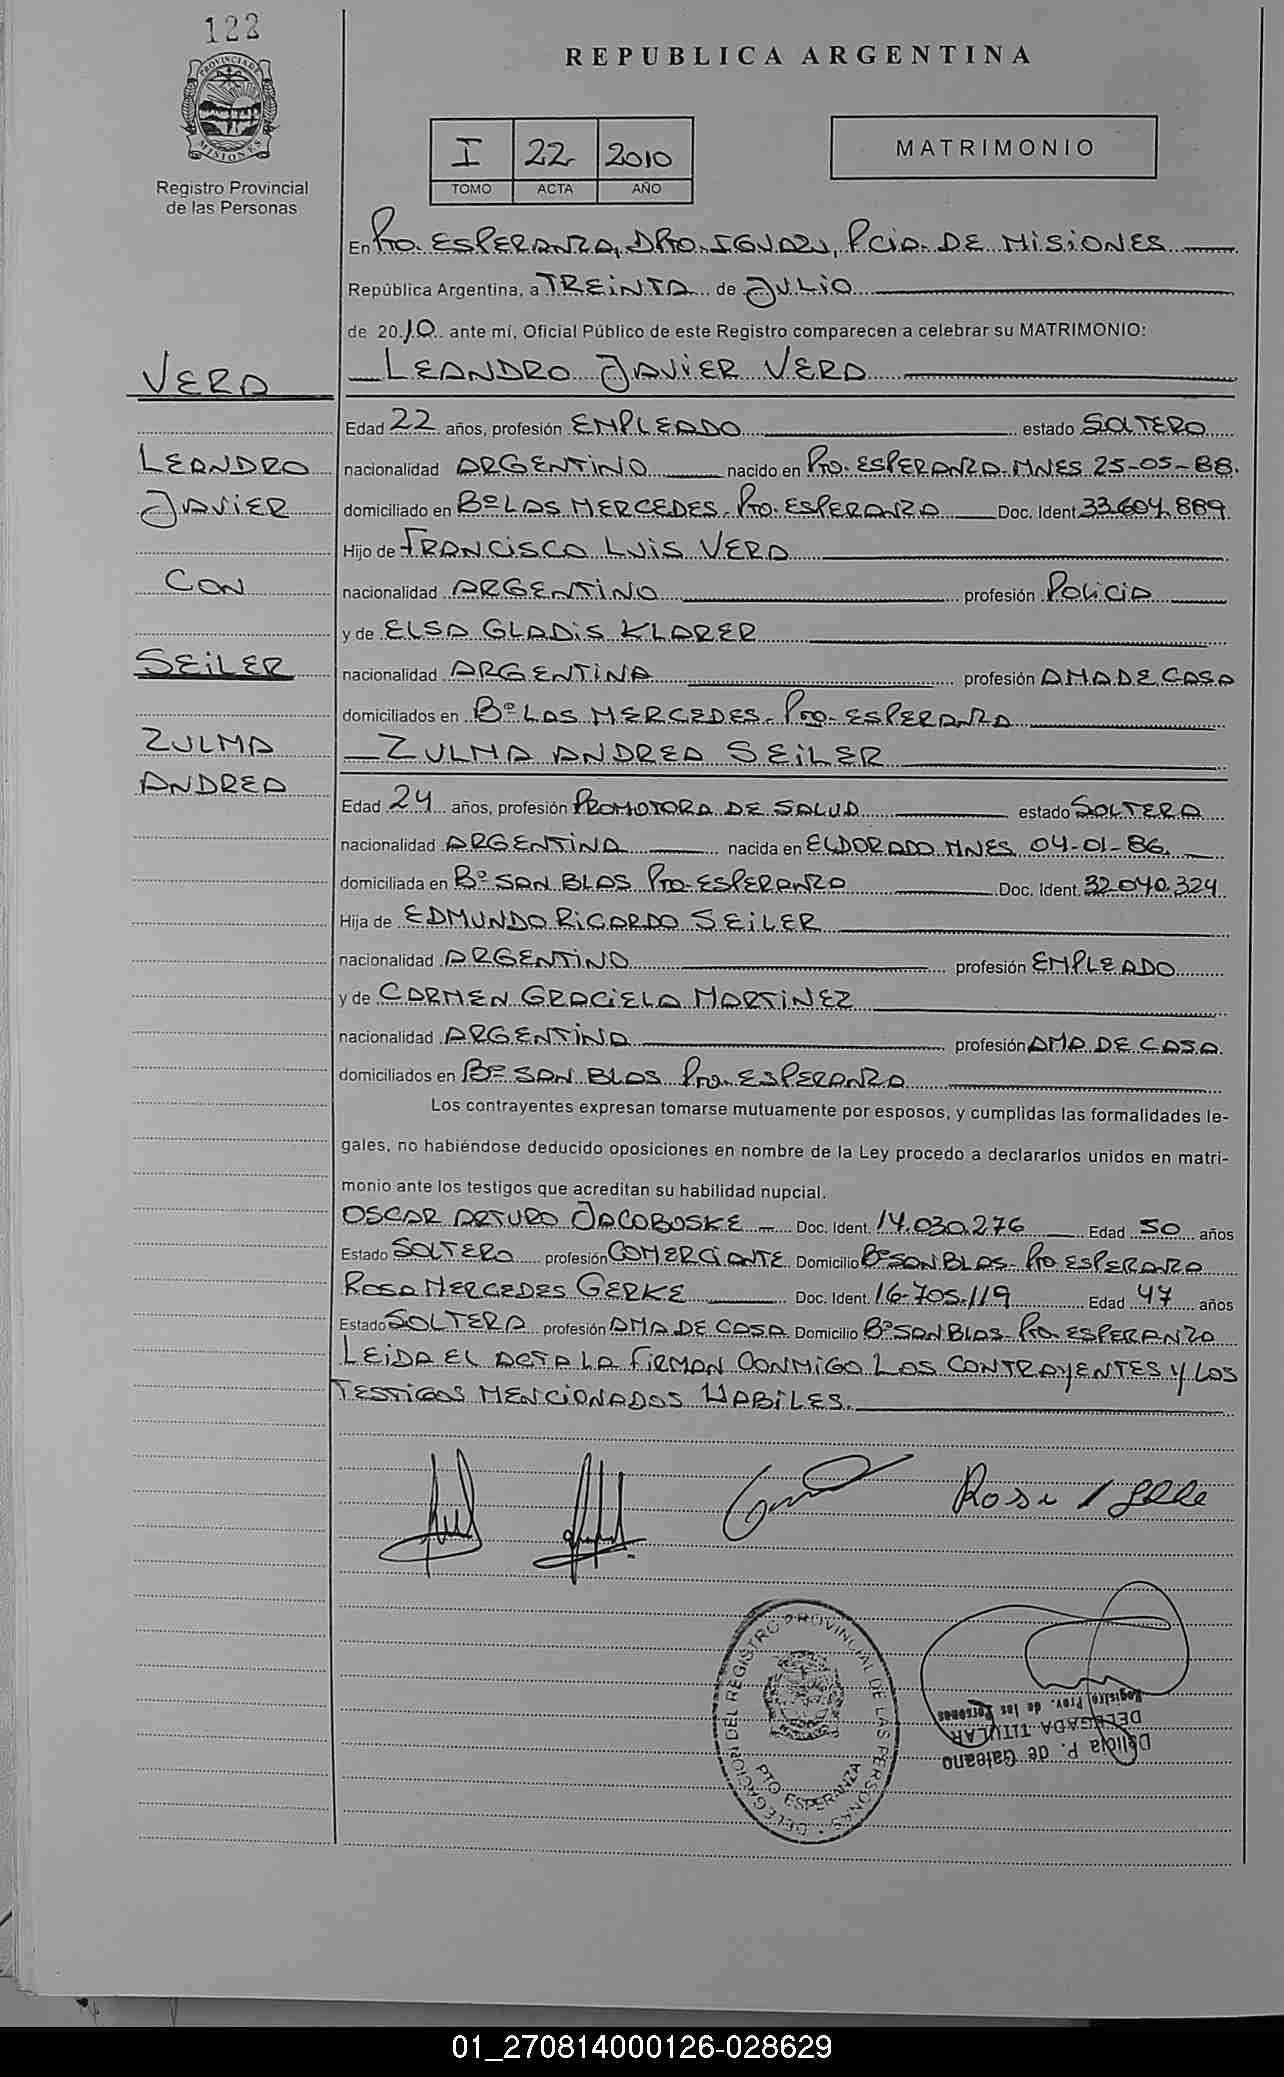 122
PROVINCIA DE
MISIONES
Registro Provincial
de las Personas
REPUBLICA ARGENTINA
I 22 2010
TOMO ACTA AÑO
MATRIMONIO
En Pto. ESPERANZA, DPTO. IGUAZU, PCIA. DE MISIONES
República Argentina, a TREINTA de JULIO
de 2010 ante mí, Oficial Público de este Registro comparecen a celebrar su MATRIMONIO:
VERA
LEANDRO JAVIER VERA
Edad 22 años, profesión EMPLEADO estado SOLTERO
LEANDRO
nacionalidad ARGENTINO nacido en Pto. ESPERANZA-MNES 25-05-88.
JAVIER
domiciliado en Bº LAS MERCEDES-Pto. ESPERANZA Doc. Ident. 33.604.889
Hijo de FRANCISCO LUIS VERA
CON
nacionalidad ARGENTINO profesión POLICIA
y de ELSA GLADIS KLARER
SEILER
nacionalidad ARGENTINA profesión AMA DE CASA
domiciliados en Bº LAS MERCEDES-Pto. ESPERANZA
ZULMA
ZULMA ANDREA SEILER
ANDREA
Edad 24 años, profesión PROMOTORA DE SALUD estado SOLTERA
nacionalidad ARGENTINA nacida en ELDORADO MNES 04-01-86.
domiciliada en Bº SAN BLAS Pto. ESPERANZA Doc. Ident. 32.040.324
Hija de EDMUNDO RICARDO SEILER
nacionalidad ARGENTINO profesión EMPLEADO
y de CARMEN GRACIELA MARTINEZ
nacionalidad ARGENTINA profesión AMA DE CASA
domiciliados en Bº SAN BLAS Pto. ESPERANZA
Los contrayentes expresan tomarse mutuamente por esposos, y cumplidas las formalidades le-
gales, no habiéndose deducido oposiciones en nombre de la Ley procedo a declararlos unidos en matri-
monio ante los testigos que acreditan su habilidad nupcial.
OSCAR ARTURO JACOBOSKE Doc. Ident. 14.030.276 Edad 50 años
Estado SOLTERO profesión COMERCIANTE Domicilio Bº SAN BLAS-Pto ESPERANZA
ROSA MERCEDES GERKE Doc. Ident. 16-705.119 Edad 47 años
Estado SOLTERA profesión AMA DE CASA Domicilio Bº SAN BLAS-Pto. ESPERANZA
LEIDA EL ACTA LA FIRMAN CONMIGO LOS CONTRAYENTES Y LOS
TESTIGOS MENCIONADOS HABILES.
DELEGACION DEL REGISTRO PROVINCIAL DE LAS PERSONAS
PTO ESPERANZA
Delicia P. de Gateano
DELEGADA TITULAR
Registro Prov. de las Personas
01_270814000126-028629